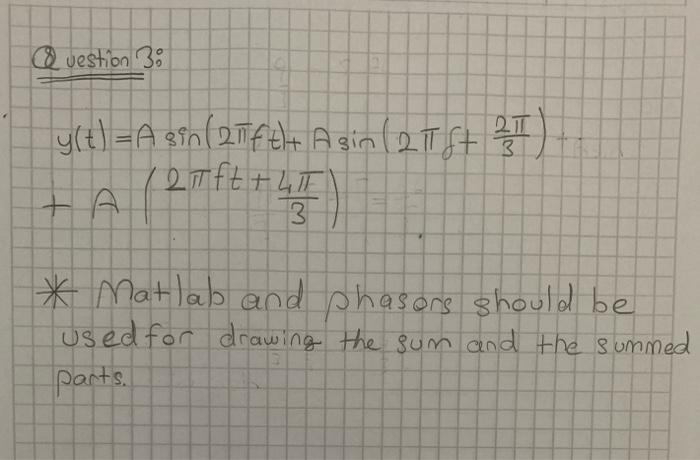 Question 3:
y(t) = A sin(2πft) + A sin(2πf + 2π/3) ...
+ A (2πft + 4π/3)
* Matlab and phasors should be
used for drawing the sum and the summed
parts.